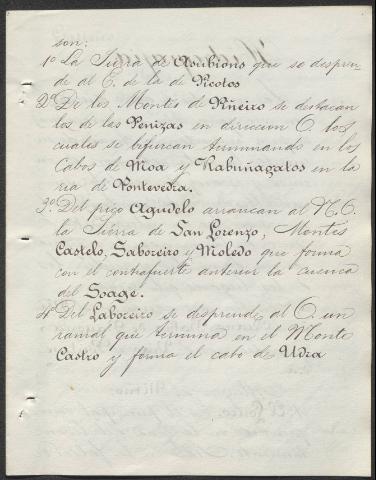 son:
1º La Sierra de Asubions que se despren-
de al E. de la de Picotos
2º De los Montes de Piñeiro se destacan
los de las Penizas en direccion O. los
cuales se bifurcan terminando en los
Cabos de Moa y Rabuñagatos en la
ria de Pontevedra.
3º Del pico Agudelo arrancan al N.O.
la Sierra de San Lorenzo, Montes
Castelo, Saboreiro y Moledo que forma
con el contrafuerte anterior la cuenca
del Soage.
4º Del Laboceiro se desprende al O. un
ramal que termina en el Monte
Castro y forma el cabo de Udra